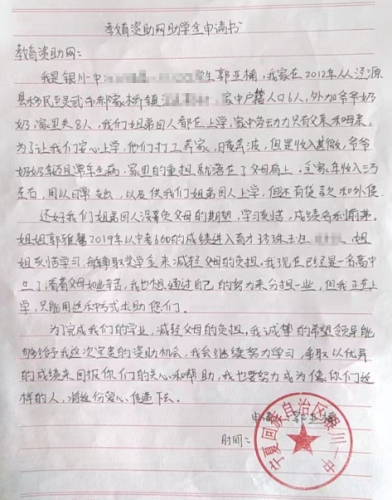 教育资助网助学金申请书
教育资助网：
我是银川一中 学生郭亚楠，我家在2012年从泾源
县移民至灵武市郝家桥镇 家中户籍人口6人，外加爷爷
奶奶家里共8人，我们姐弟四人都在上学，家中劳动力只有父亲和母亲。
为了让我们安心上学，他们打工养家，日夜奔波，但是收入甚微，爷爷
奶奶年迈且常年生病，家里的重担就落在了父母肩上，全家年收入三万
左右，用以日常支出，以及供我们姐弟四人上学，但还有贷款和外债。
还好我们姐弟四人没辜负父母的期望，学习刻苦，成绩名列前茅。
姐姐郭雅 2019年以中考600的成绩进入育才珍珠生班 ，姐
姐刻苦学习，能够取奖学金来减轻父母的负担，我现在已经是一名高中
生了，看着父母如此辛苦，我也想通过自己的努力来分担一些，但我正在上
学，只能用这种方式求助您们。
为了完成我们的学业，减轻父母的负担，我诚挚的希望领导能
够给予我这次宝贵的资助机会，我会继续努力学习，争取以优异
的成绩来回报你们的关心和帮助，我也要努力成为像你们这
样的人，将这份爱心传递下去。
申请人
时间：
宁夏回族自治区银川一中